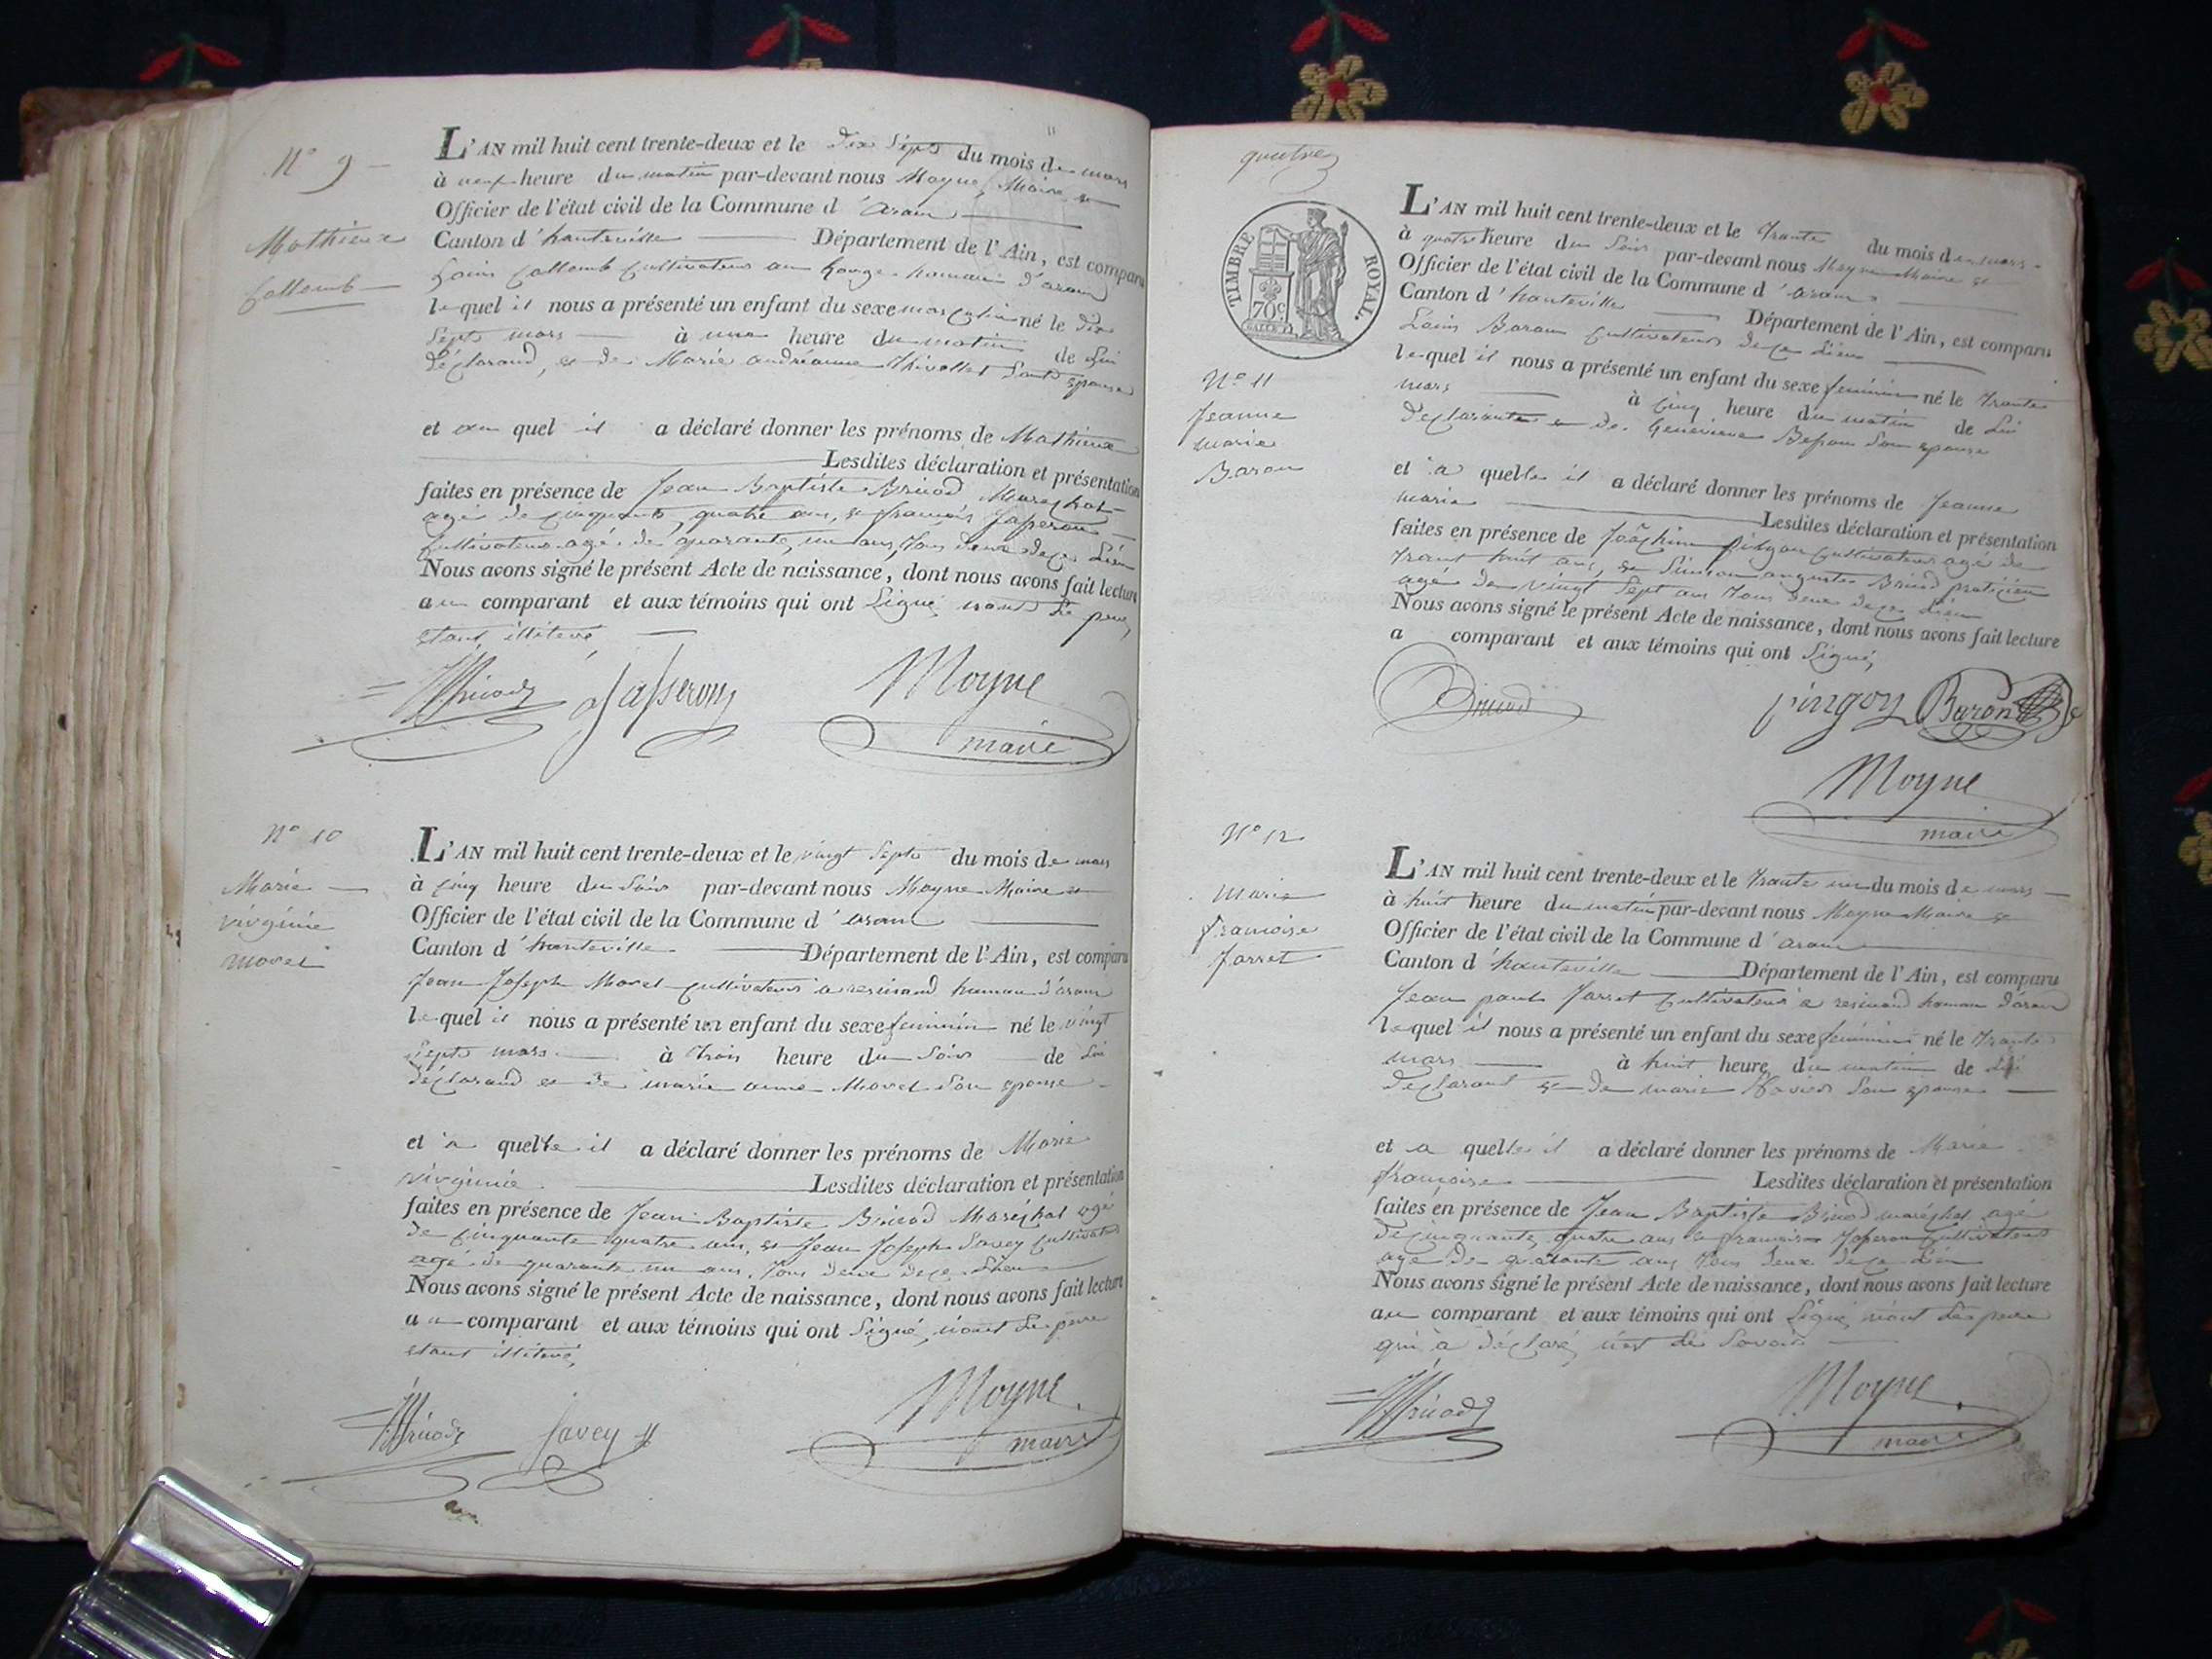 N° 9
Mathieux
Collomb
L'AN mil huit cent trente-deux et le dix Sept du mois de mars
à neuf heure du matin par-devant nous Moyne, Maire et
Officier de l'état civil de la Commune d'aranc
Canton d'hauteville Département de l'Ain, est comparu
Louis Collomb Cultivateur au hameau d'aranc
lequel il nous a présenté un enfant du sexe masculin né le dix
Sept mars à une heure du matin de lui
déclarand, et de Marie andréanne Thivollet Son epouse
et au quel il a déclaré donner les prénoms de Mathieux
Lesdites déclaration et présentation
faites en présence de Jean Baptiste Bricod Marechal
agé de Cinquante quatre ans, et françois Jasseron
Cultivateur agé de quarante un ans, Tous deux de Ce Lieu
Nous avons signé le présent Acte de naissance, dont nous avons fait lecture
au comparant et aux témoins qui ont Signé, non Le pere,
etant illiteré
Bricod Jasseron Moyne
maire
N° 10
Marie
virginie
Morel
L'AN mil huit cent trente-deux et le vingt Sept du mois de mars
à Cinq heure du Soir par-devant nous Moyne Maire et
Officier de l'état civil de la Commune d'aranc
Canton d'hauteville Département de l'Ain, est comparu
Jean Joseph Morel Cultivateur a resinand hameau d'aranc
lequel il nous a présenté un enfant du sexe feminin né le vingt
Sept mars à Trois heure du Soir de lui
déclarand et de marie anne Morel Son epouse
et a quelle il a déclaré donner les prénoms de Marie
virginie Lesdites déclaration et présentation
faites en présence de Jean Baptiste Bricod Maréchal agé
de Cinquante quatre ans, et Jean Joseph Savey Cultivateur
agé de quarante un ans, Tous deux de Ce Lieu
Nous avons signé le présent Acte de naissance, dont nous avons fait lecture
au comparant et aux témoins qui ont Signé, non Le pere
etant illiteré,
Bricod Savey Moyne
maire
quatre
TIMBRE ROYAL.
70c
N° 11
Jeanne
marie
Baron
L'AN mil huit cent trente-deux et le Trante du mois de mars
à quatre heure du Soir par-devant nous Moyne Maire et
Officier de l'état civil de la Commune d'aranc
Canton d'hauteville Département de l'Ain, est comparu
Louis Baron Cultivateur de Ce Lieu
lequel il nous a présenté un enfant du sexe feminin né le Trante
mars à Cinq heure du matin de Lui
déclarante et de Genevieve Son epouse
et a quelle il a déclaré donner les prénoms de Jeanne
marie Lesdites déclaration et présentation
faites en présence de Joâchim Pingon Cultivateur agé de
Trant huit ans, et Simon auguste Bricod praticien
agé de vingt Sept ans Tous deux de Ce Lieu
Nous avons signé le présent Acte de naissance, dont nous avons fait lecture
a comparant et aux témoins qui ont Signé,
Bricod pingon Baron
Moyne
maire
N° 12
Marie
françoise
Jarret
L'AN mil huit cent trente-deux et le Trante un du mois de mars
à huit heure du matin par-devant nous Moyne Maire et
Officier de l'état civil de la Commune d'aranc
Canton d'hauteville Département de l'Ain, est comparu
Jean paul Jarret Cultivateur a resinand hameau d'aranc
lequel il nous a présenté un enfant du sexe feminin né le Trante
mars à huit heure du matin de lui
déclarant et de marie Son epouse
et a quelle il a déclaré donner les prénoms de Marie
françoise Lesdites déclaration et présentation
faites en présence de Jean Baptiste Bricod maréchal agé
de Cinquante quatre ans et françois Jasseron Cultivateur
agé de quarante ans Tous deux de Ce Lieu
Nous avons signé le présent Acte de naissance, dont nous avons fait lecture
au comparant et aux témoins qui ont Signé, non Le pere
qui a déclaré ne Savoir
Bricod Moyne
maire